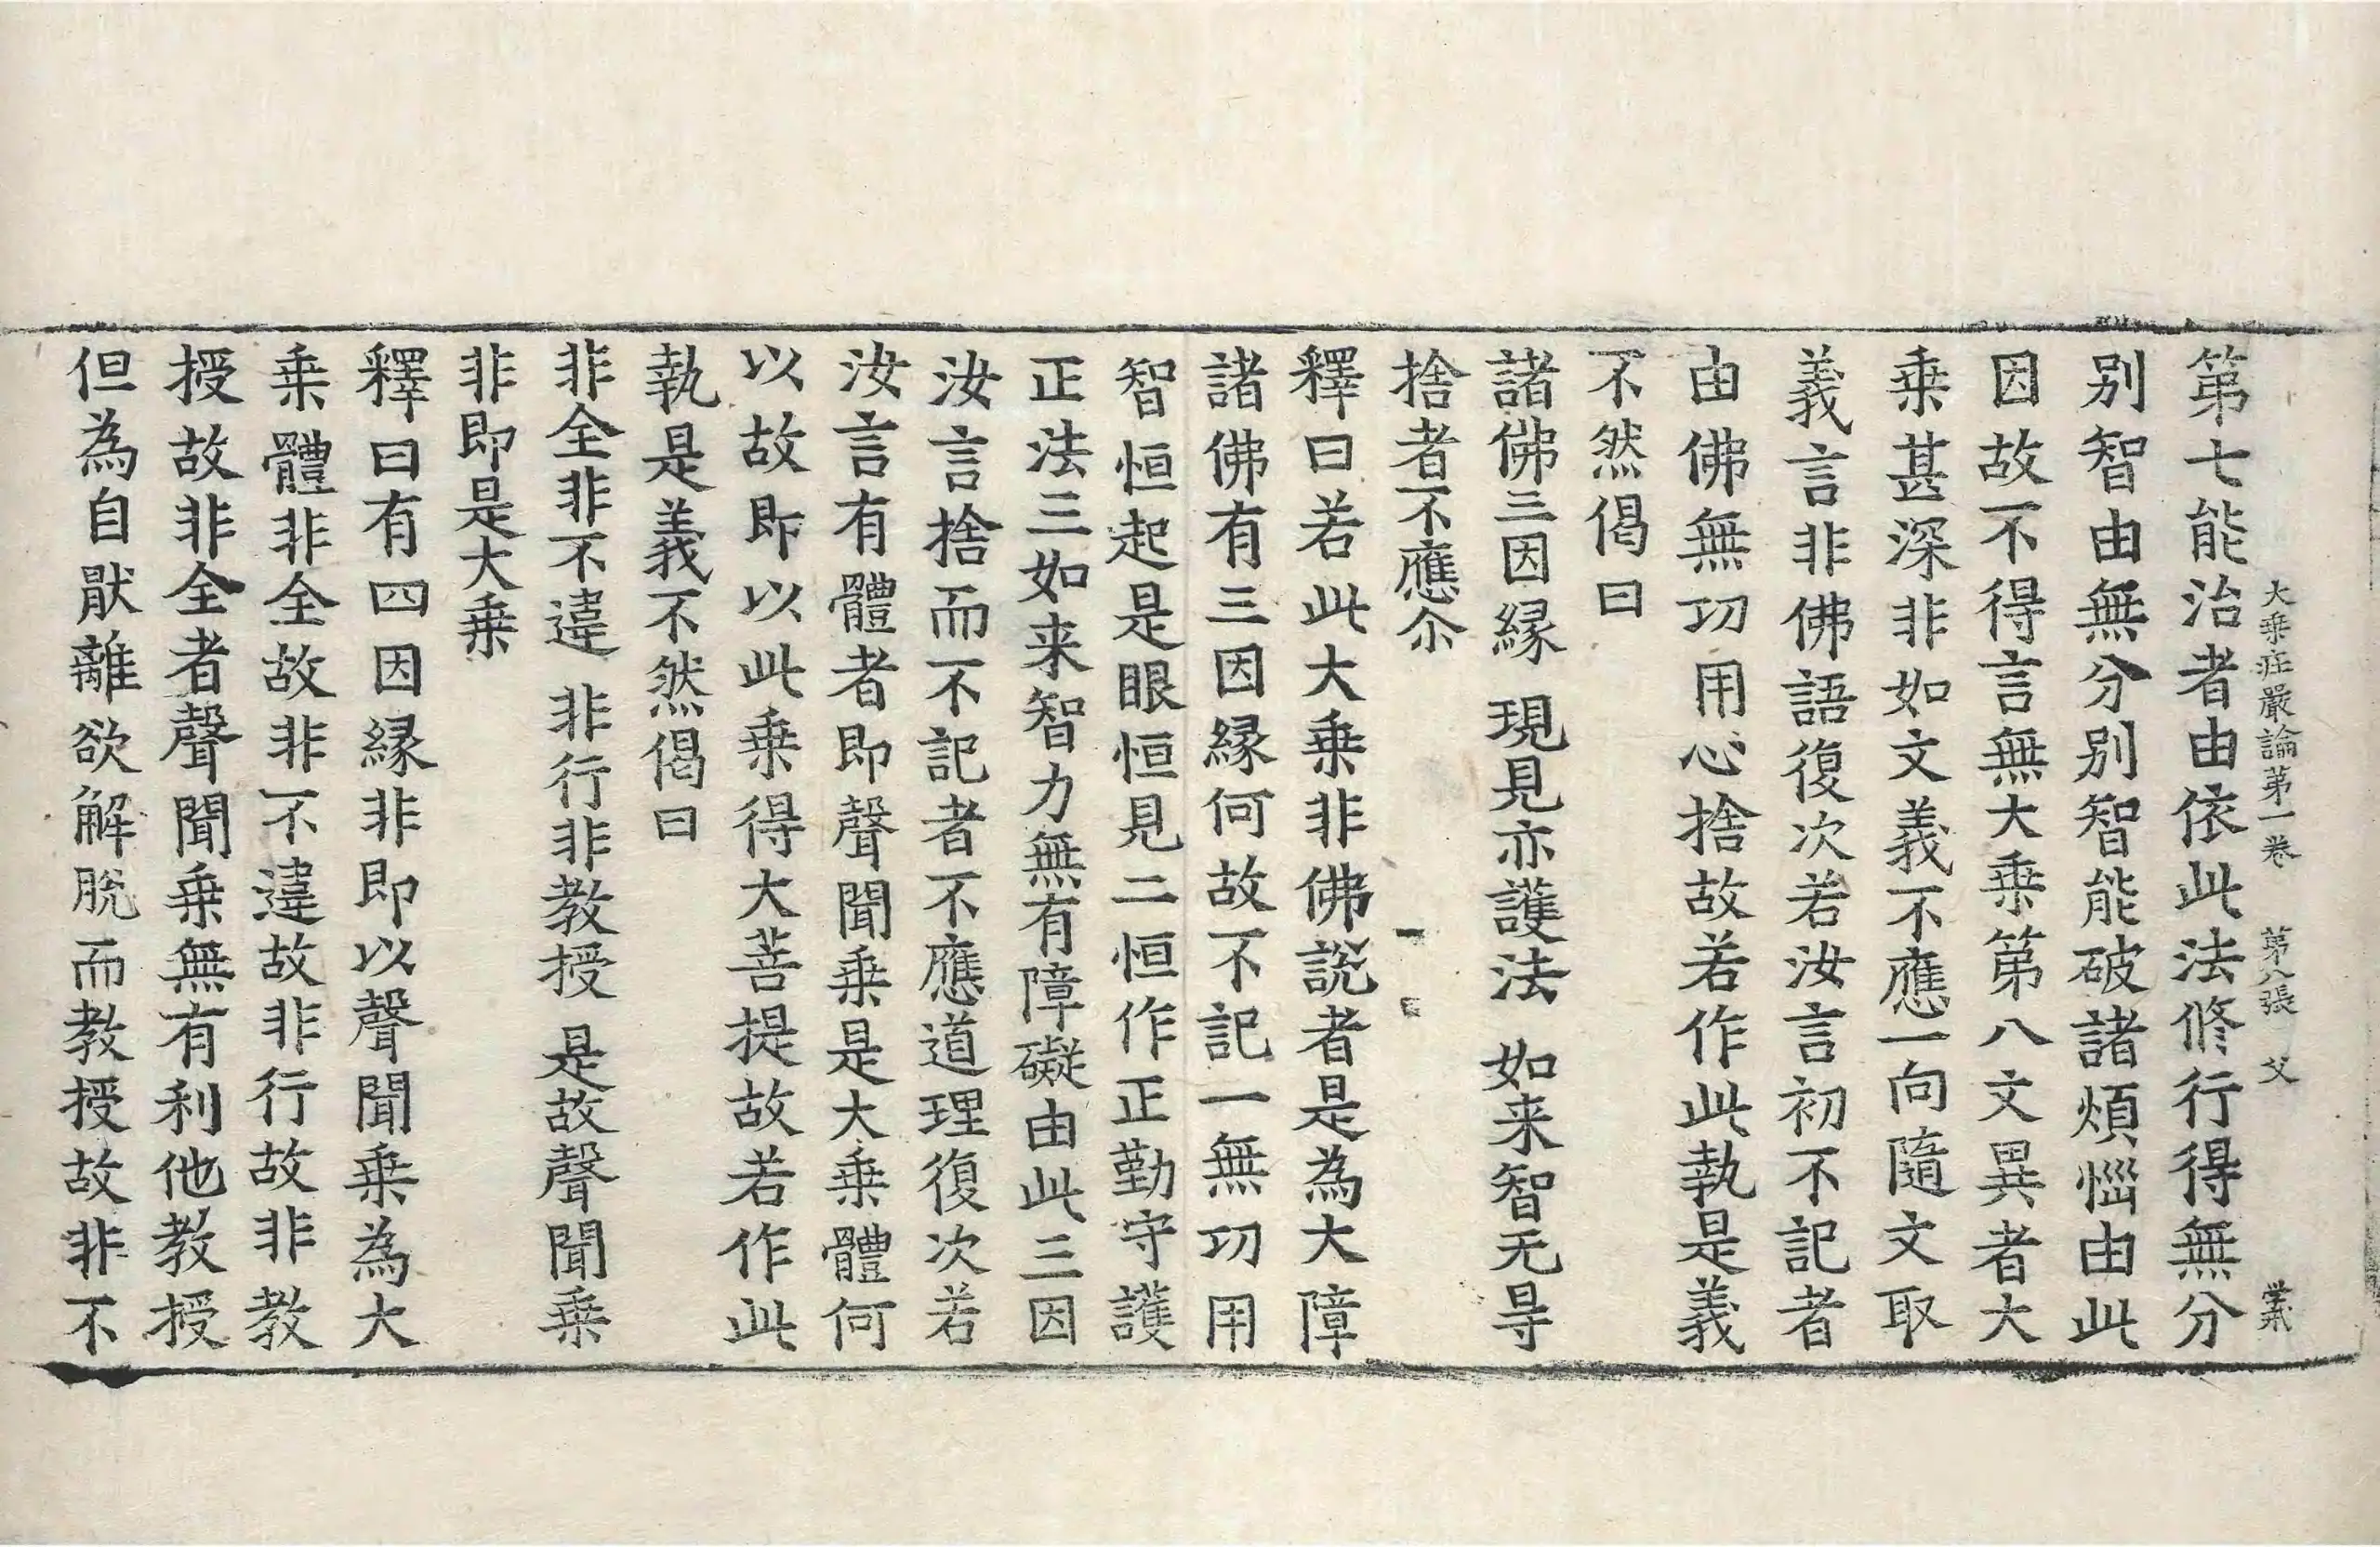 大乗庄嚴論第一卷 第八張 父
第七能治者由依此法修行得無分
别智由無分别智能破諸煩惱由此
因故不得言無大乗第八文異者大
乗甚深非如文義不應一向隨文取
義言非佛語復次若汝言初不記者
由佛無功用心捨故若作此執是義
不然偈曰
諸佛三因縁 現見亦護法 如来智无㝵
捨者不應尒
釋曰若此大乗非佛説者是為大障
諸佛有三因縁何故不記一無功用
智恒起是眼恒見二恒作正勤守護
正法三如来智力無有障礙由此三因
汝言捨而不記者不應道理復次若
汝言有體者即聲聞乗是大乗體何
以故即以此乗得大菩提故若作此
執是義不然偈曰
非全非不違 非行非教授 是故聲聞乗
非即是大乗
釋曰有四因縁非即以聲聞乗為大
乗體非全故非不違故非行故非教
授故非全者聲聞乗無有利他教授
但為自猒離欲解脱而教授故非不